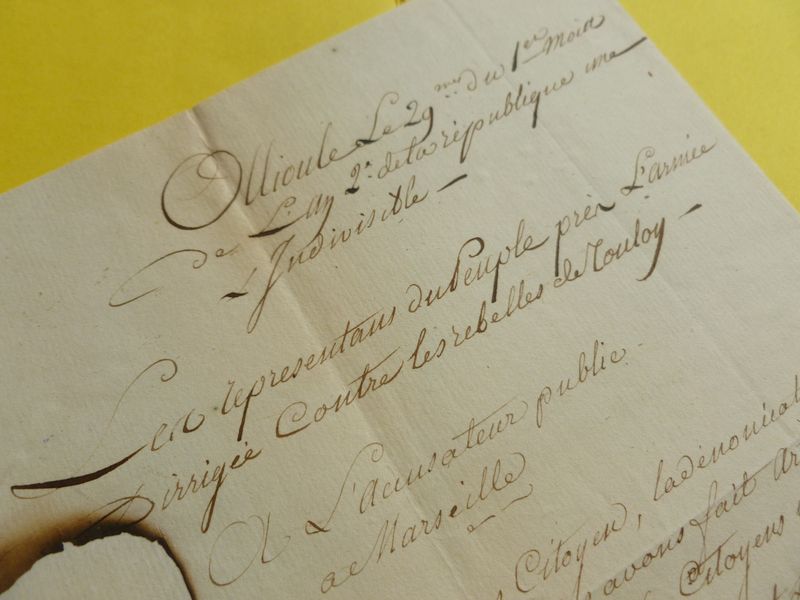 Ollioule Le 29me du 1er mois
de L'an 2e de la république une
& Indivisible -
Les représentans du Peuple près L'armée
Dirrigée Contre les rebelles de Toulon -
A L'Accusateur public -
a Marseille
Citoyen, la dénonciat
avons fait Ar
Citoyens